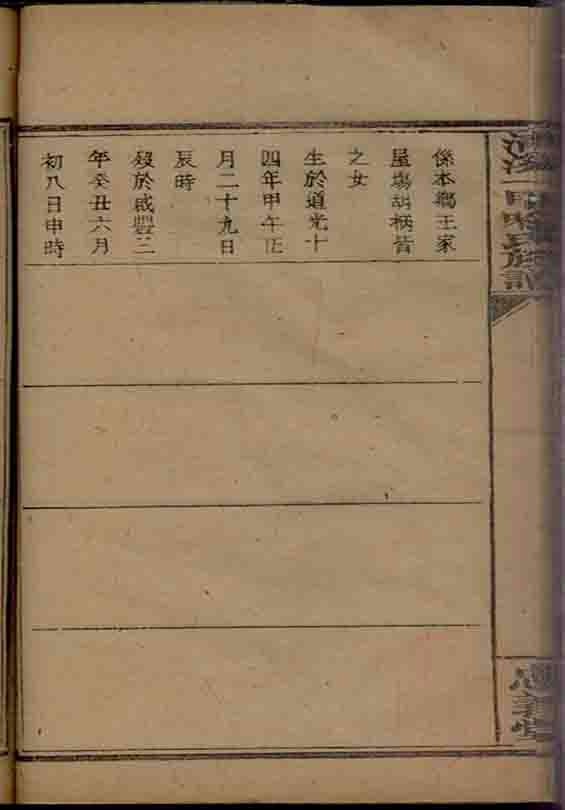 係本鄉王家
屋塲胡柄皆
之女
生於道光十
四年甲午正
月二十九日
辰時
殁於咸豐三
年癸丑六月
初八日申時
氏族
堂